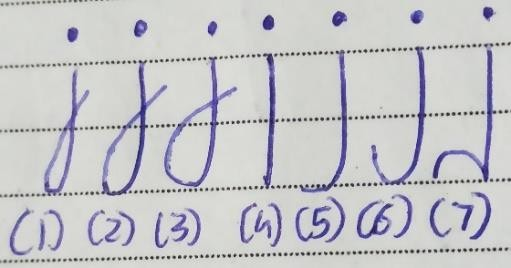 j j j j j j j
(1) (2) (3) (4) (5) (6) (7)